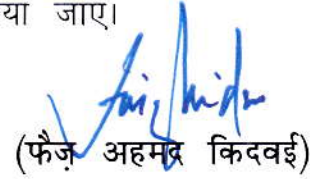 या जाए।
(फैज़ अहमद किदवई)